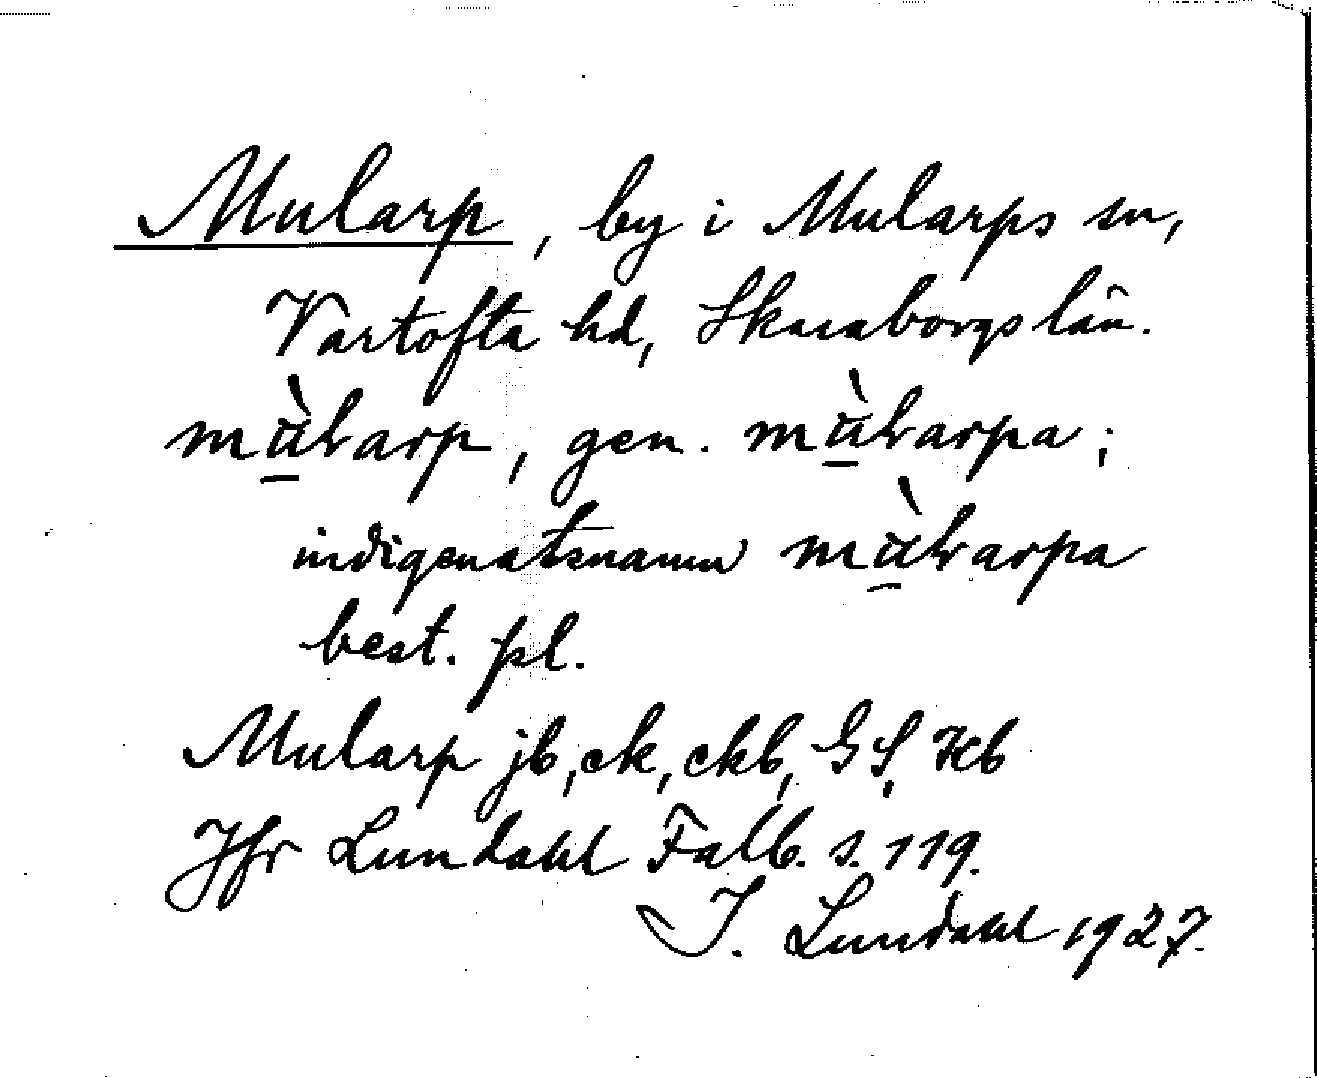 Mularp, by i Mularps sn,
Vartofta hd, Skaraborgs län.
mùlarp, gen. mùlarpa;
indigenatsnamn mùlarpa
best. pl.
Mularp jb, ek, ekb, GS, Kb
Jfr Lundahl Falb. s. 119.
I. Lundahl 1927.